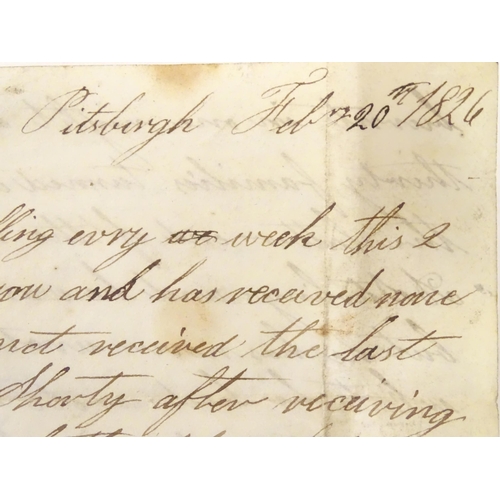 Pitsburgh Febry 20th 1826
lling evry week this 2
you and has received none
not received the last
Shorty after receiving